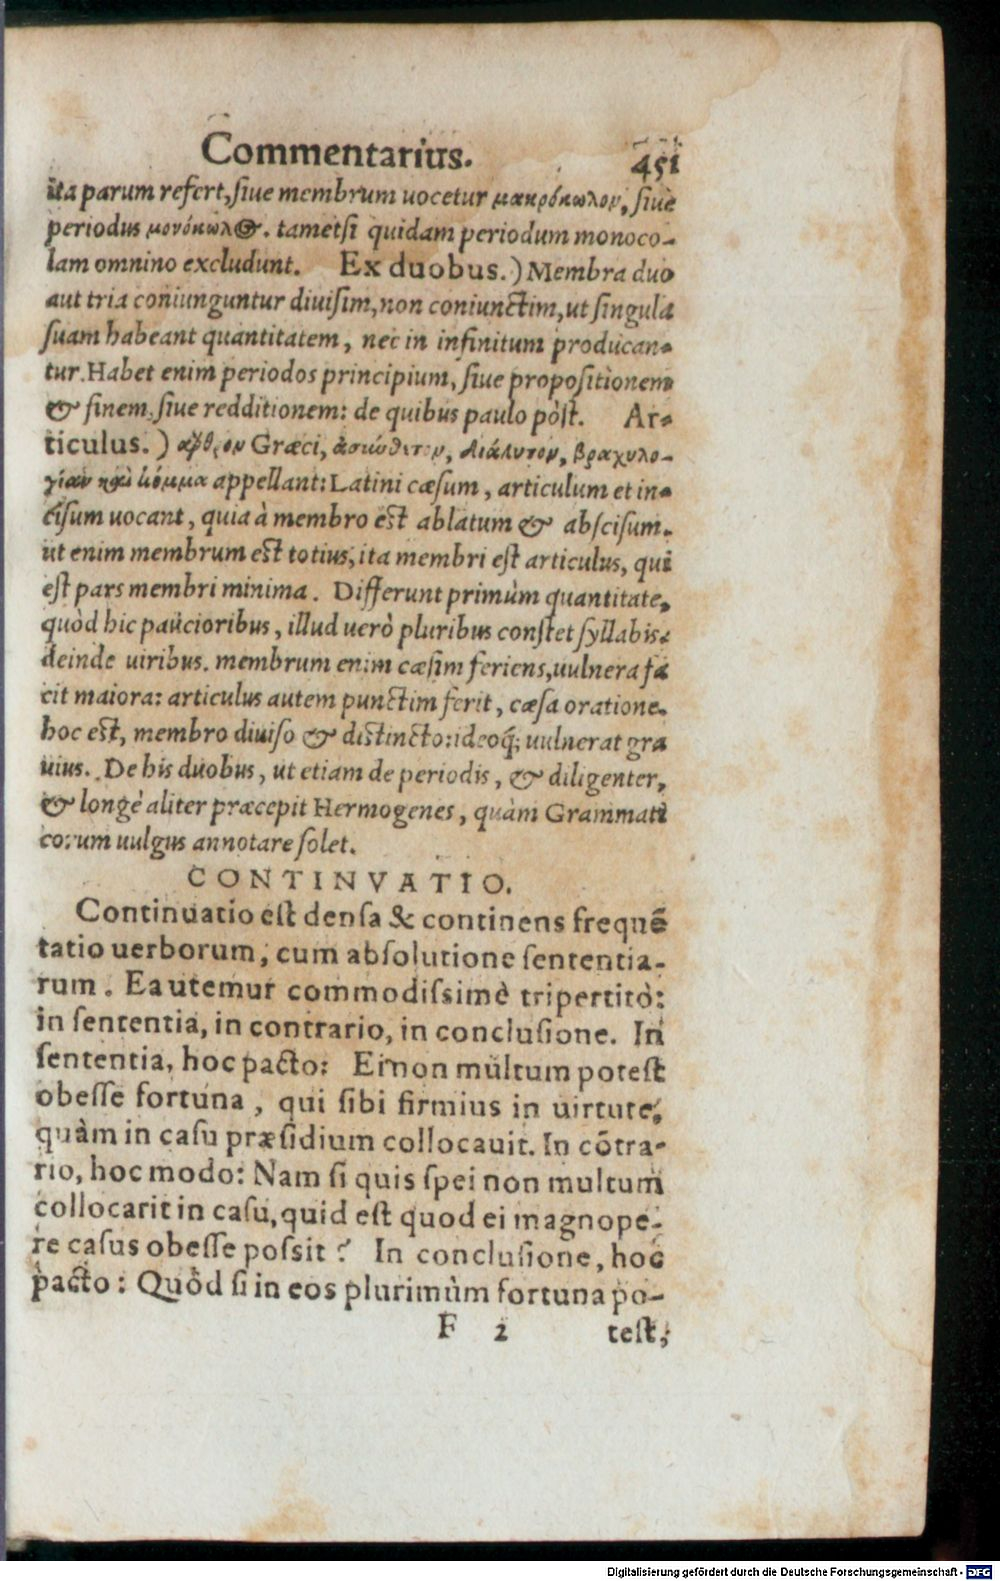 Commentarius. 451
ita parum refert, siue membrum uocetur μακρόκωλον, siue
periodus μονόκωλος. tametsi quidam periodum monoco-
lam omnino excludunt. Ex duobus.) Membra duo
aut tria coniunguntur diuisim, non coniunctim, ut singula
suam habeant quantitatem, nec in infinitum producan-
tur. Habet enim periodos principium, siue propositionem
& finem, siue redditionem: de quibus paulo pòst. Ar-
ticulus.) ἄρθρον Græci, ἀσύνθετον, διάλυτον, βραχυλο-
γίαν καὶ κόμμα appellant: Latini cæsum, articulum et in-
cisum uocant, quia à membro est ablatum & abscisum.
ut enim membrum est totius, ita membri est articulus, qui
est pars membri minima. Differunt primùm quantitate,
quòd hic paucioribus, illud uerò pluribus constet syllabis.
deinde uiribus. membrum enim cæsim feriens, uulnera fa
cit maiora: articulus autem punctim ferit, cæsa oratione.
hoc est, membro diuiso & distincto: ideoq́; uulnerat gra
uius. De his duobus, ut etiam de periodis, & diligenter,
& longè aliter præcepit Hermogenes, quàm Grammati
corum uulgus annotare solet.
CONTINVATIO.
Continuatio est densa & continens frequē
tatio uerborum, cum absolutione sententia-
rum. Ea utemur commodissimè tripertitò:
in sententia, in contrario, in conclusione. In
sententia, hoc pacto: Ei non multum potest
obesse fortuna, qui sibi firmius in uirtute,
quàm in casu præsidium collocauit. In cōtra-
rio, hoc modo: Nam si quis spei non multum
collocarit in casu, quid est quod ei magnope-
re casus obesse possit? In conclusione, hoc
pacto: Quòd si in eos plurimùm fortuna po-
F 2 test,
Digitalisierung gefördert durch die Deutsche Forschungsgemeinschaft - DFG